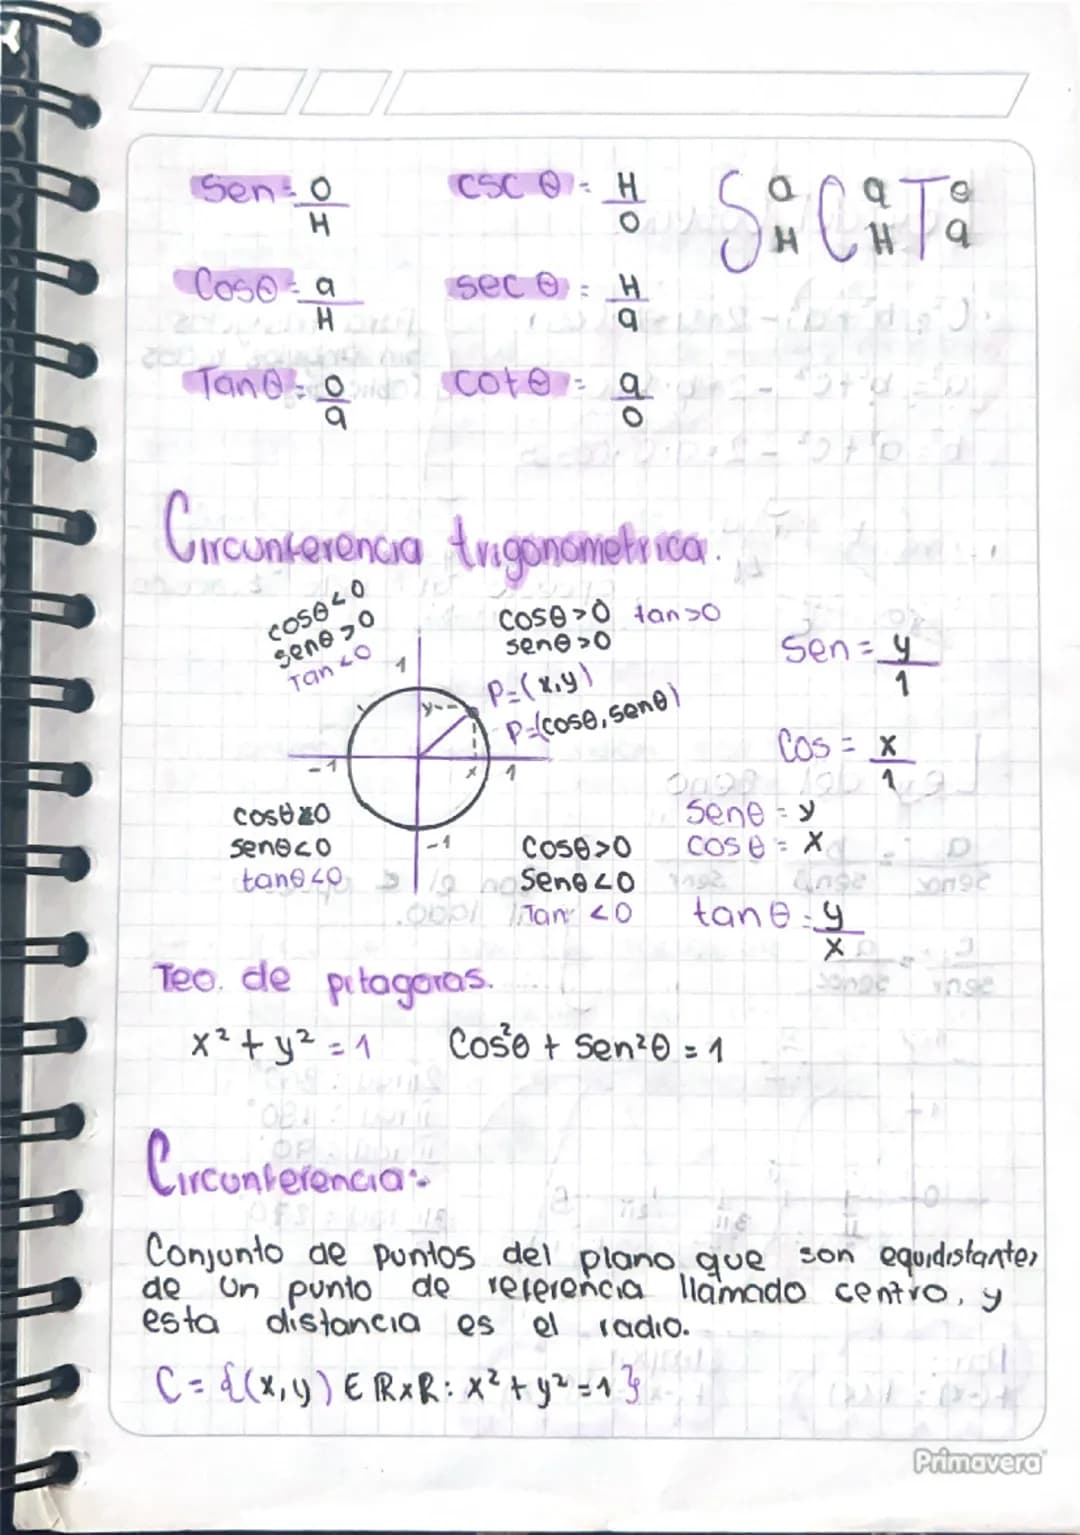 Sen = O/H
csc θ = H/O
S a/H C a/H T o/a
Cosθ = a/H
sec θ = H/a
Tanθ = O/a
cotθ = a/O
Circunferencia trigonometrica.
cosθ<0
senθ>0
Tan <0
cosθ>0 tan>0
senθ>0
P=(x,y)
P=(cosθ, senθ)
1
y
-1
x
1
-1
Sen = y/1
Cos = x/1
senθ = y
cosθ = x
tanθ = y/x
senθ<0
tanθ<0
Cosθ>0
Senθ<0
Tan <0
Teo. de pitagoras.
x² + y² = 1 Cos²θ + Sen²θ = 1
Circunferencia:
Conjunto de puntos del plano que son equidistantes
de un punto de referencia llamado centro, y
esta distancia es el radio.
C = {(x,y) ∈ ℝxℝ: x² + y² = 1}
Primavera